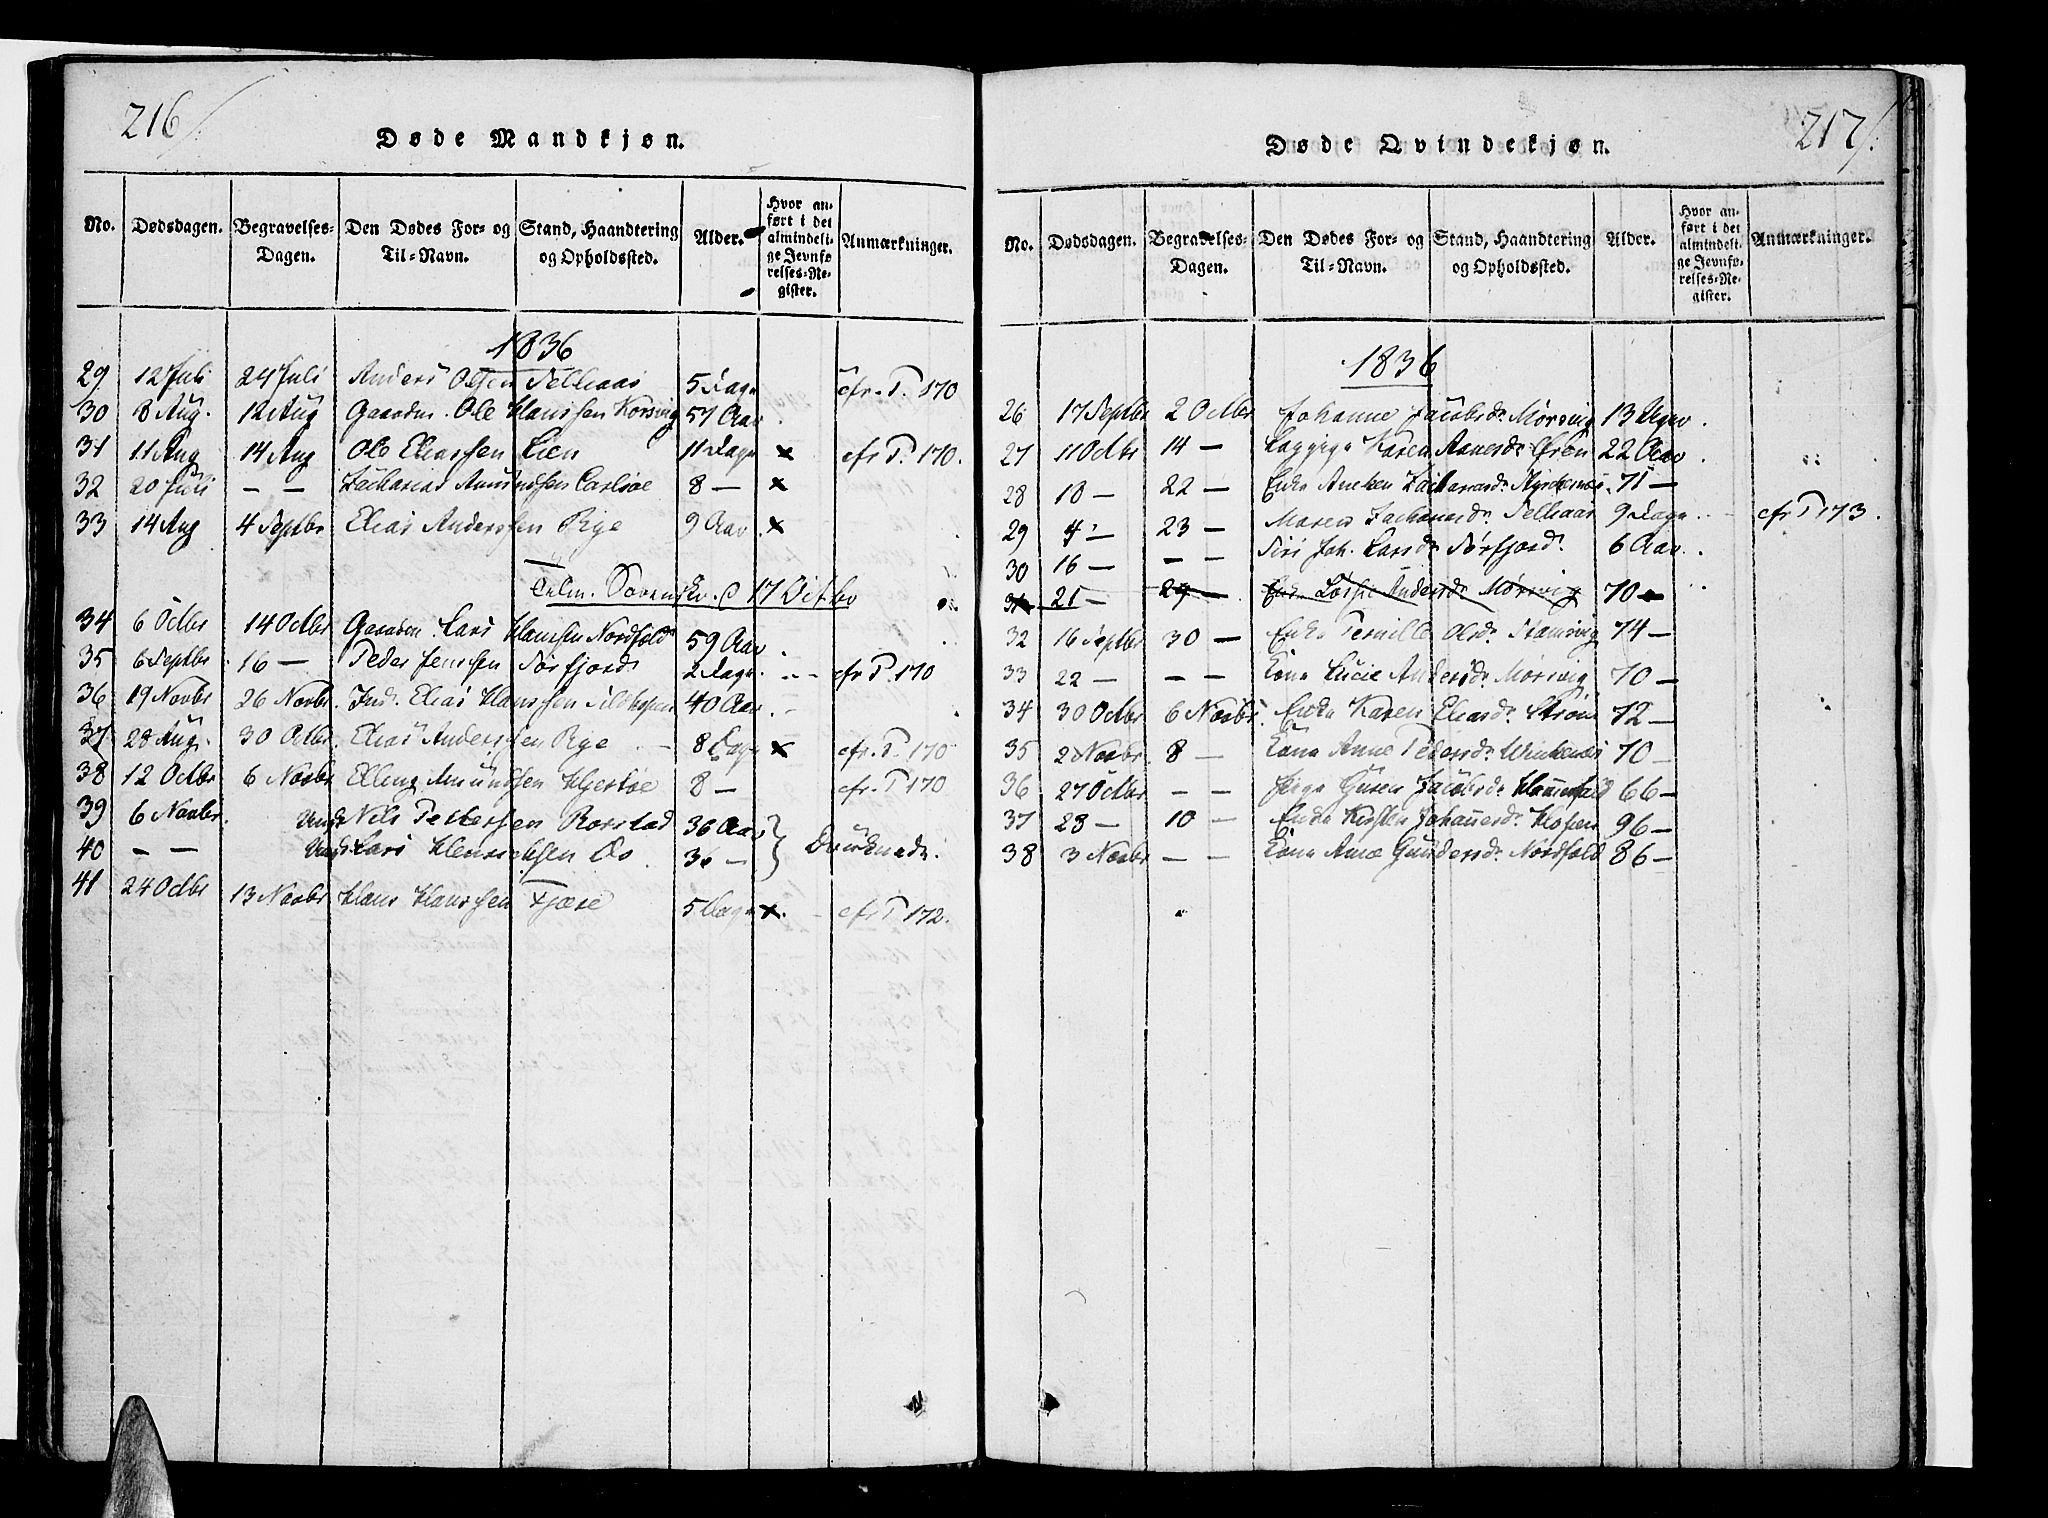 216/.
Døde Mandkjøn.
No. Dødsdagen. Begravelses-Dagen. Den Dødes For- og Til-Navn. Stand, Haandtering og Opholdssted. Alder. Hvor anført i det almindelige Jevnførelses-Register. Anmærkninger.
1836
29 12 Juli 24 Juli Anders Olsen Tellraas 5 Dage cfr. P. 170
30 8 Aug. 12 Aug Gaardm. Ole Hanssen Korsvig 57 Aar
31 11 Aug 14 Aug Ole Eliassen Lien 11 Dage × cfr P. 170.
32 20 Juli — — Zacharias Amundsen Carlsøe 8 — ×
33 14 Aug 4 Septbr Elias Anderssen Rye 9 Aar ×
17 Octbr
34 6 Octbr 14 Octbr Gaardm. Lars Hanssen Nordfold 59 Aar
35 6 Septbr 16 — Peder Jenssen Sørfjord 2 Dage cfr P. 170
36 19 Novbr 26 Novbr. Ind. Elias Hanssen Sildhopen 40 Aar
37 28 Aug. 30 Octbr. Elias Anderssen Rye 8 Dage × cfr. P. 170
38 12 Octbr 6 Novbr Elling Amundsen Hjertøe 8 — cfr. P 170
39 6 Novbr. Ungk Nils Pettersen Rorstad 36 Aar
40 — — Ungk Lars Henrichsen Os 36 — } Druknede.
41 24 Octbr 13 Novbr Hans Hanssen Kjære 5 Dage ×. cfr P 172.
217/.
Døde Qvindekjøn.
No. Dødsdagen. Begravelses-Dagen. Den Dødes For- og Til-Navn. Stand, Haandtering og Opholdssted. Alder. Hvor anført i det almindelige Jevnførelses-Register. Anmærkninger.
1836
26 17 Septbr 2 Octbr Johanne Jacobsd. Mørsvig 13 Uger
27 11 Octbr 14 — Karen 22 Aar
28 18 — 22 — Enke Anchen Zachariasd. 71 —
29 4 — 23 — Maren Zachariasd. Tellraas 9 Dage cfr P 173.
30 16 — — — Siri Joh. Larsd. Sørfjord. 6 Aar.
31 21 — 29 — Enke Andersd. Mørsvig 70 —
32 16 Septbr 30 — Enke Pernille Olsd. Stamsvig 74 —
33 22 — — — Kone Lucie Andersd. Mørsvig 70 —
34 30 Octbr 6 Novbr. Enke Karen Eliasd. Strøm 72 —
35 2 Novbr. 8 — Kone Anne Pedersd. Winkenes 70 —
36 27 Octbr — — Pige Guren Jacobsd. Hammerfald 66 —
37 28 — 10 — Enke Kirsten Johannesd. Hopen 96 —
38 3 Novbr — — Kone Ane Gundersd. Nordfold 86 —